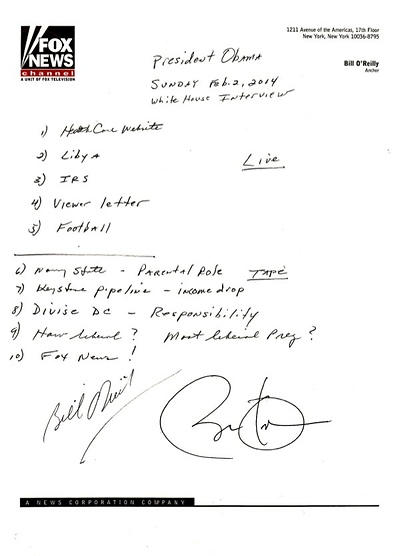 FOX
NEWS
channel
A UNIT OF FOX TELEVISION
1211 Avenue of the Americas, 17th Floor
New York, New York 10036-8795
Bill O'Reilly
Anchor
President Obama
Sunday Feb. 2, 2014
White House Interview
1) Health Care Website
2) Libya
Live
3) IRS
4) Viewer letter
5) Football
6) Nanny State - Parental Role TAPE
7) Keystone Pipeline - income drop
8) Divise DC - Responsibility
9) How liberal? Most liberal Prez?
10) Fox News!
Bill O'Reilly
A NEWS CORPORATION COMPANY